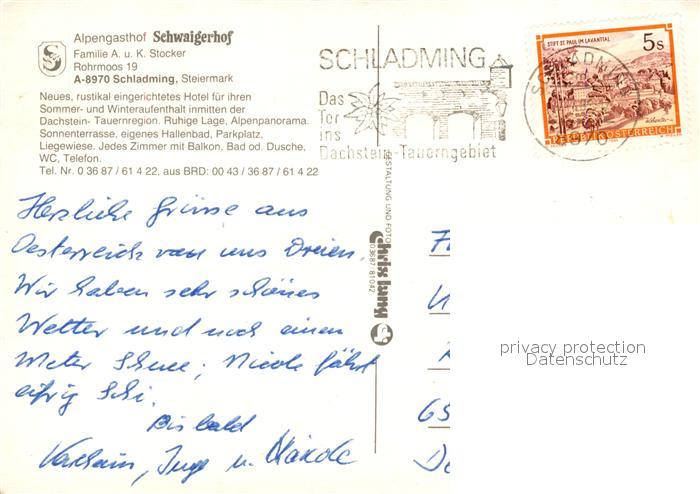 Alpengasthof Schwaigerhof
Familie A. u. K. Stocker
Rohrmoos 19
A-8970 Schladming, Steiermark
Neues, rustikal eingerichtetes Hotel für ihren
Sommer- und Winteraufenthalt inmitten der
Dachstein- Tauernregion. Ruhige Lage, Alpenpanorama.
Sonnenterrasse, eigenes Hallenbad, Parkplatz,
Liegewiese. Jedes Zimmer mit Balkon, Bad od. Dusche,
WC, Telefon.
Tel. Nr. 0 36 87 / 61 4 22, aus BRD: 00 43 / 36 87 / 61 4 22
SCHLADMING
Das
Tor
ins
Dachstein-Tauerngebiet
STIFT ST. PAUL IM LAVANTTAL
5s
REPUBLIK ÖSTERREICH
SCHLADMING
8970
GESTALTUNG UND FOTO
Chris Lang
03687 / 81042
Herzliche Grüsse aus
Oesterreich von uns Dreien.
Wir haben sehr schönes
Wetter und noch einen
Meter Schnee; Nicole fährt
eifrig Schi.
Bis bald
Inge u.
65
privacy protection
Datenschutz